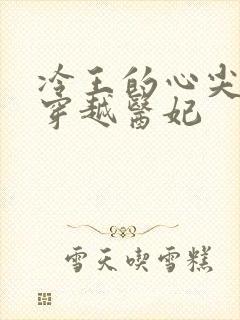 冷王的心尖
穿越醫妃
雪天喫雪糕